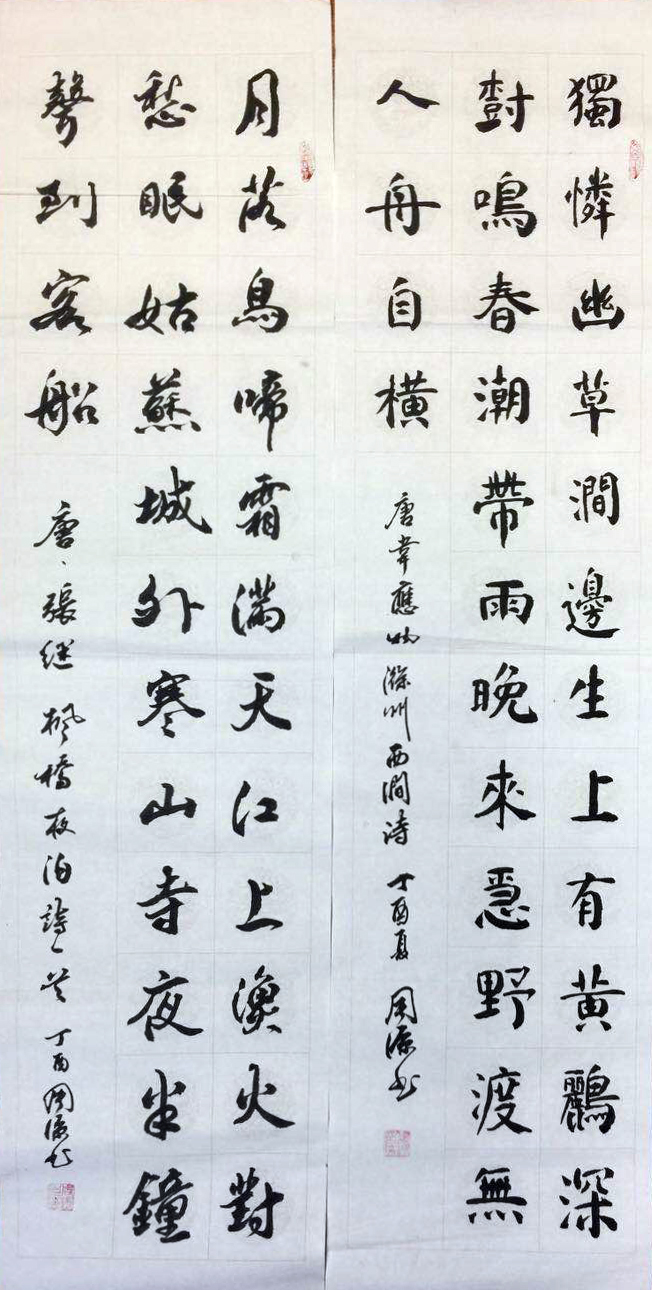 獨憐幽草澗邊生上有黃鸝深
樹鳴春潮帶雨晚來急野渡無
人舟自橫
唐韋應物滁州西澗詩 丁酉夏 周源书
月落烏啼霜滿天江上漁火對
愁眠姑蘇城外寒山寺夜半鐘
聲到客船
唐、張继楓橋夜泊詩一首 丁酉周源书